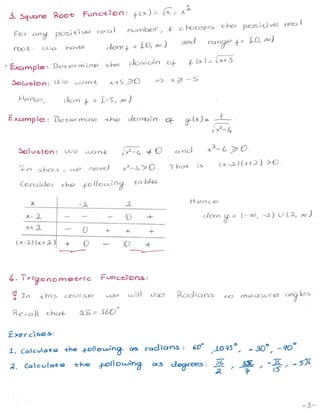 3. Square Root Function: f(x) = √x = x^½
For any positive real number, f chooses the positive real
root. We have dom f = [0, ∞) and range f = [0, ∞)
• Example: Determine the domain of f(x) = √x+5
Solution: We want x+5 ≥ 0 ⇒ x ≥ -5
Hence, dom f = [-5, ∞)
Example: Determine the domain of g(x) = 1/√x²-4
Solution: We want √x²-4 ≠ 0 and x²-4 ≥ 0.
In short, we need x²-4 > 0. That is (x-2)(x+2) > 0.
Consider the following table
x -2 2
x-2 - - - 0 +
x+2 - 0 + + +
(x-2)(x+2) + 0 - 0 +
Hence
dom g = (-∞, -2) ∪ (2, ∞).
4. Trigonometric Functions:
In this course we will use Radians to measure angles.
Recall that 2π = 360°
Exercises:
1. Calculate the following as radians: 60°, 1075°, -30°, -90°
2. Calculate the following as degrees: π/2, 3π/7, -π/15, -5π
-3-